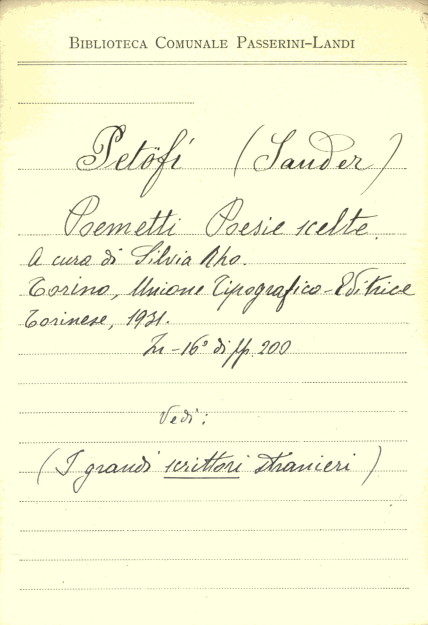 BIBLIOTECA COMUNALE PASSERINI–LANDI
Petöfi (Sander)
Poemetti Poesie scelte.
A cura di Silvia Rho.
Torino, Unione Tipografico-Editrice
Torinese, 1931.
In-16° di pp. 200
Vedi:
(I grandi scrittori stranieri)